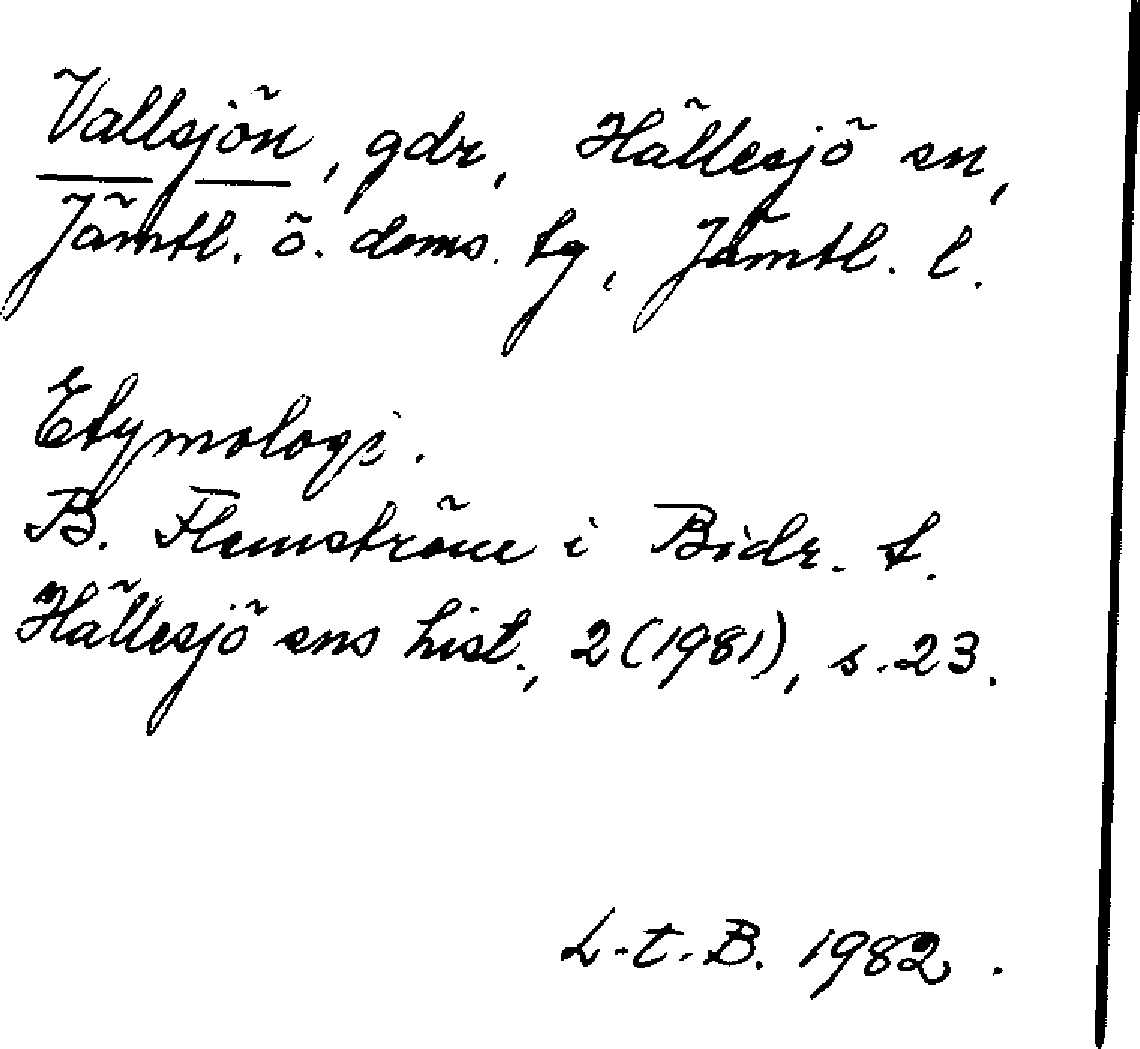 Vallsjön, gdr, Hällesjö sn,
Jämtl. ö. doms. tg, Jämtl. l.
Etymologi.
B. Flemström i Bidr. t.
Hällesjö sns hist., 2 (1981), s. 23.
L-t. B. 1982.